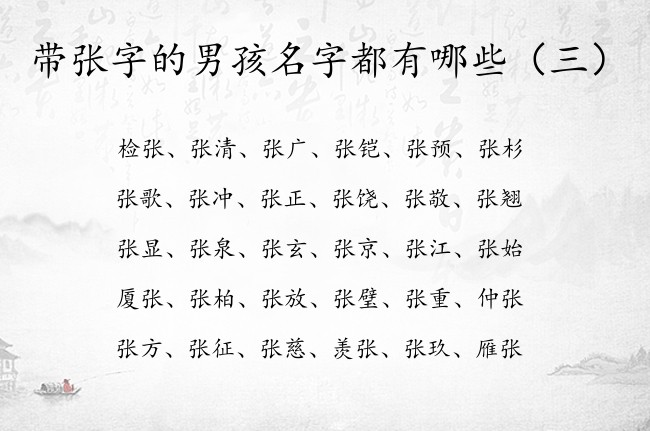 带张字的男孩名字都有哪些（三）
检张、张清、张广、张铠、张预、张杉
张歌、张冲、张正、张饶、张敬、张翘
张显、张泉、张玄、张京、张江、张始
厦张、张柏、张放、张璧、张重、仲张
张方、张征、张慈、羡张、张玖、雁张